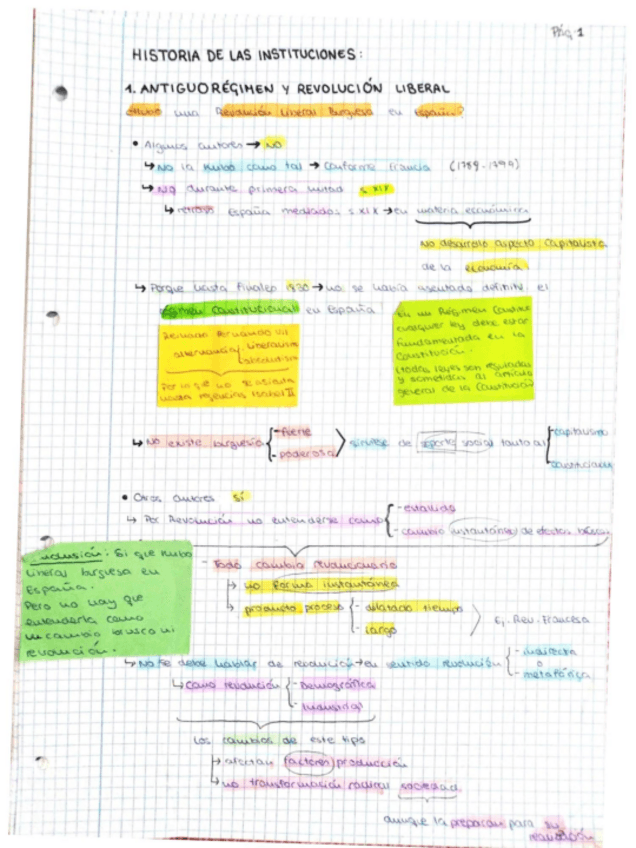 Pág. 1
HISTORIA DE LAS INSTITUCIONES:
1. ANTIGUO RÉGIMEN Y REVOLUCIÓN LIBERAL
¿Hubo una Revolución Liberal Burguesa en España?
• Algunos autores → NO
↳ No la hubo como tal → Conforme Francia (1789-1799)
↳ NO durante primera mitad s XIX
↳ retraso España mediados s XIX → en materia económica
No desarrollo aspecto capitalista
de la economía
↳ Porque hasta finales 1830 → no se había asentado definitiv el
Régimen Constitucional en España
Reinado Fernando VII
alternancia liberalism
absolutism
Por lo que no se asienta
hasta regencias Isabel II
En un Régimen Constituc
cualquier ley debe estar
fundamentada en la
Constitución.
(todas leyes son reguladas
y sometidas al
general de la Constitución
↳ No existe burguesía - fuerte
- poderosa
sirviese de soporte social tanto al - capitalismo
- constitucionalis
• Otros autores SÍ
↳ Por Revolución no entenderse como - estallido
- cambio instantáneo de efectos
Conclusión: Si que hubo
liberal burguesa en
España.
Pero no hay que
entenderla como
un cambio brusco ni
revolución.
- Todo cambio revolucionario
↳ no forma instantánea
↳ producto proceso - dilatado tiempo
- largo
Ej. Rev. Francesa
↳ No se debe hablar de revolución → en sentido revolución - indirecta
o
- metafórica
↳ Como revolución - Demográfica
- Industrial
Los cambios de este tipo
↳ afectan factores producción
↳ no transformación radical sociedad
aunque la preparan para su
revolución